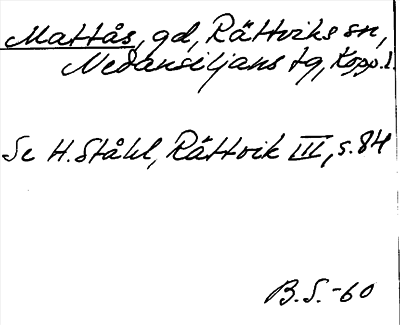 Mattås, gd, Rättviks sn,
Nedansiljans tg, Kopp.l.
Se H. Ståhl, Rättvik III, s. 84
B.S.-60